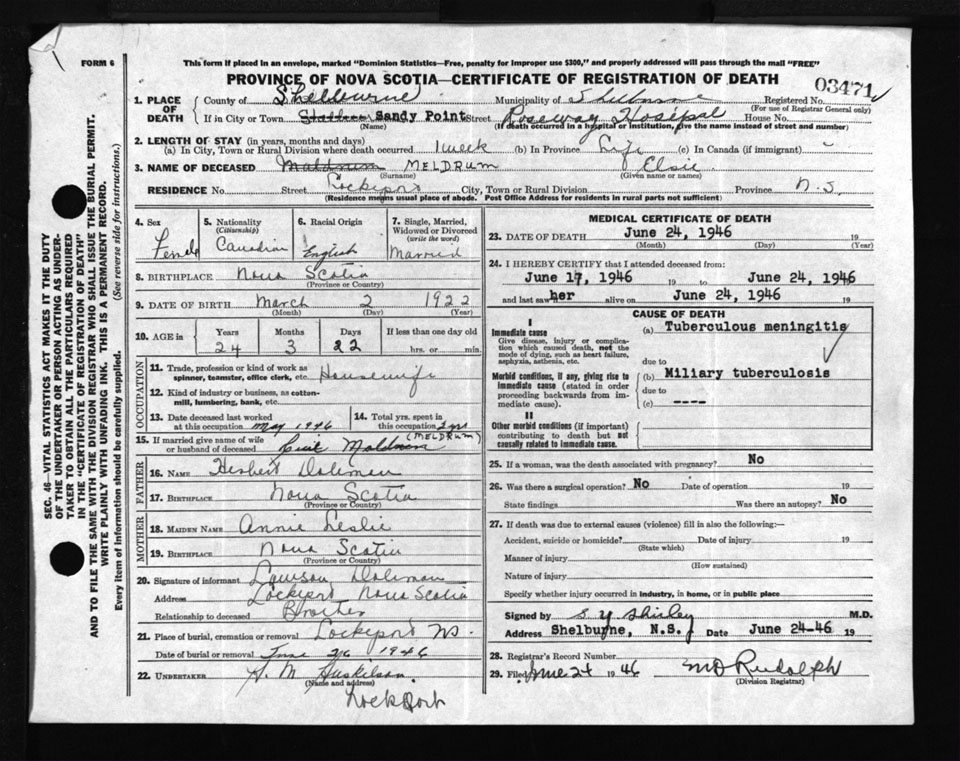 FORM 6
This form if placed in an envelope, marked "Dominion Statistics—Free, penalty for improper use $300," and properly addressed will pass through the mail "FREE"
PROVINCE OF NOVA SCOTIA—CERTIFICATE OF REGISTRATION OF DEATH
03471
1. PLACE OF DEATH
County of Shelbourne Municipality of Registered No.
(For use of Registrar General only)
If in City or Town Sandy Point Street Roseway Hospal House No.
(Name) (If death occurred in a hospital or institution, give the name instead of street and number)
2. LENGTH OF STAY (in years, months and days)
(a) In City, Town or Rural Division where death occurred 1 week (b) In Province Life (c) In Canada (if immigrant) -
3. NAME OF DECEASED MELDRUM Elsie
(Surname) (Given name or names)
RESIDENCE No. Street Lockeport City, Town or Rural Division Province N.S.
(Residence means usual place of abode. Post Office Address for residents in rural parts not sufficient)
4. Sex Female
5. Nationality (Citizenship) Canadian
6. Racial Origin English
7. Single, Married, Widowed or Divorced (write the word) Married
8. BIRTHPLACE Nova Scotia
(Province or Country)
9. DATE OF BIRTH March 2 1922
(Month) (Day) (Year)
10. AGE in Years Months Days If less than one day old
24 3 22 hrs. or min.
OCCUPATION
11. Trade, profession or kind of work as spinner, teamster, office clerk, etc. Housewife
12. Kind of industry or business, as cotton-mill, lumbering, bank, etc.
13. Date deceased last worked at this occupation May 1946
14. Total yrs. spent in this occupation 2 yrs
15. If married give name of wife or husband of deceased (MELDRUM)
FATHER
16. NAME Herbert
17. BIRTHPLACE Nova Scotia
(Province or Country)
MOTHER
18. MAIDEN NAME Annie Leslie
19. BIRTHPLACE Nova Scotia
(Province or Country)
20. Signature of informant Lawson
Address Lockeport Nova Scotia
Relationship to deceased Brother
21. Place of burial, cremation or removal Lockeport NS.
Date of burial or removal June 26 1946
22. UNDERTAKER
(Name and address)
Lockport
MEDICAL CERTIFICATE OF DEATH
23. DATE OF DEATH June 24, 1946 19
(Month) (Day) (Year)
24. I HEREBY CERTIFY that I attended deceased from:
June 17, 1946 19 to June 24, 1946
and last saw her alive on June 24, 1946 19
CAUSE OF DEATH
I
Immediate cause (a) Tuberculous meningitis
Give disease, injury or complication which caused death, not the mode of dying, such as heart failure, asphyxia, asthenia, etc.
due to
Morbid conditions, if any, giving rise to immediate cause (stated in order proceeding backwards from immediate cause).
(b) Miliary tuberculosis
due to
(c) ----
II
Other morbid conditions (if important) contributing to death but not causally related to immediate cause.
25. If a woman, was the death associated with pregnancy? No
26. Was there a surgical operation? No Date of operation 19
State findings Was there an autopsy? No
27. If death was due to external causes (violence) fill in also the following:—
Accident, suicide or homicide? Date of injury 19
(State which)
Manner of injury
(How sustained)
Nature of injury
Specify whether injury occurred in industry, in home, or in public place
Signed by S. Y. Shirley M.D.
Address Shelburne, N.S. Date June 24-46 19
28. Registrar's Record Number
29. Filed June 24 1946 MD Rudolph
(Division Registrar)
SEC. 46—VITAL STATISTICS ACT MAKES IT THE DUTY
OF THE UNDERTAKER OR PERSON ACTING AS UNDER-
TAKER TO OBTAIN ALL THE PARTICULARS REQUIRED
IN THE "CERTIFICATE OF REGISTRATION OF DEATH"
AND TO FILE THE SAME WITH THE DIVISION REGISTRAR WHO SHALL ISSUE THE BURIAL PERMIT.
WRITE PLAINLY WITH UNFADING INK. THIS IS A PERMANENT RECORD.
Every item of information should be carefully supplied. (See reverse side for instructions.)